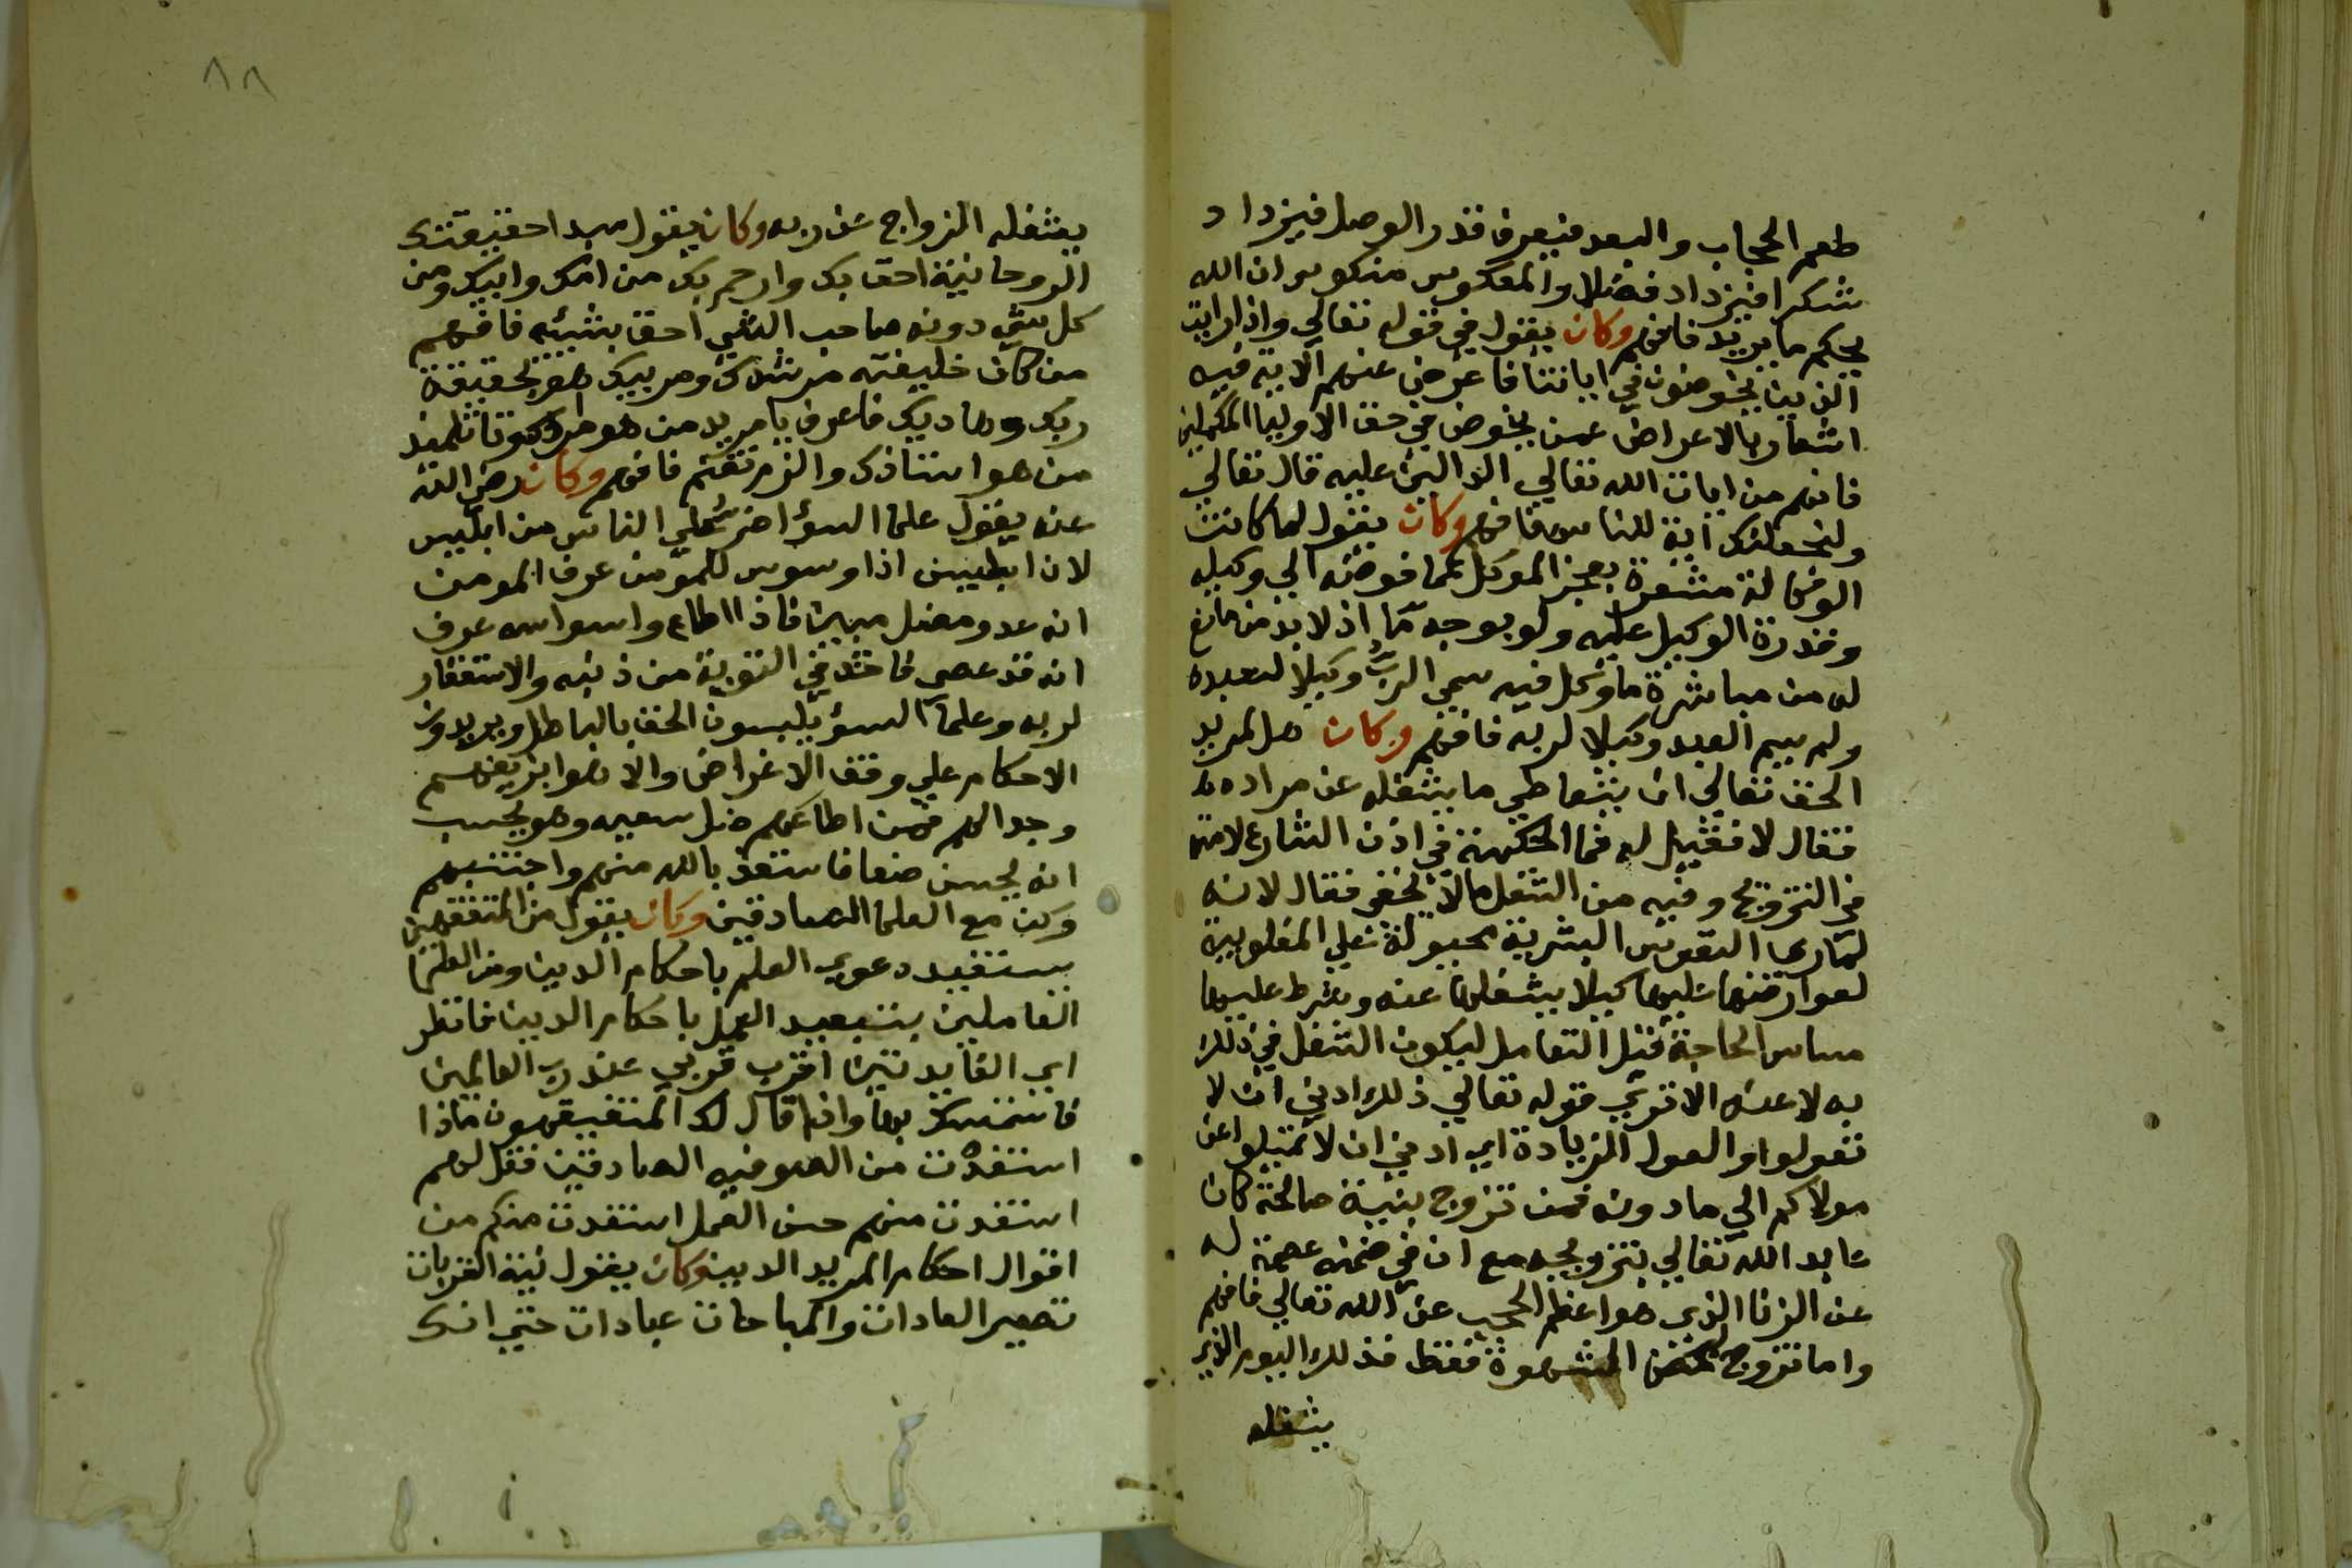 طعم الحجاب والبعد فيعرف قدر الوصل فيزداد
شكرا فيزداد فضلا والمعكوس منكوس ان الله
يحكم ما يريد فافهم وكان يقول في قوله تعالي واذا رايت
الذين يخوضون في اياتنا فاعرض عنهم الاية فيه
اشعار بالاعراض عمن يخوض في حق الاوليا المكملين
فانهم من ايات الله تعالي الدالين عليه قال تعالي
ولنجعلك اية للناس فافهم وكان يقول لما كانت
الوكالة مشعرة بعجز الموكل عما فوضه الي وكيله
وقدرة الوكيل عليه ولو بوجه ما اذ لا بد من مانع
له من مباشرة ما وكل فيه سمي الرب وكيلا لعبده
ولم يسم العبد وكيلا لربه فافهم وكان هل لمريد
الحق تعالي ان يتعاطي ما يشغله عن مراده
فقال لا فقيل له فما الحكمة في اذن الشارع لامته
في التزويج وفيه من الشغل ما لا يخفي فقال لانه
لما راي النفوس البشرية مجبولة علي المغلوبية
لعوارضها عليها كيلا يشغلها عنه وشرط عليها
مساس الحاجة قبل التعامل ليكون الشغل في ذلك
به لا عنه الا تري قوله تعالي ذلك ادني ان لا
تعولوا والعول الزيادة اي ادني ان لا تميلوا عن
مولاكم الي ما دونه فمن تزوج بنية صالحة كان
عابد الله تعالي بتزويجه مع ان في ضمنه عصمة له
عن الزنا الذي هو اعظم الحجب عن الله تعالي فافهم
واما تزوج لمحض الشهوة فقط فذلك اليوم الذي
يشغله
٨٨
يشغله الزواج عن ربه وكان يقول مبدا حقيقتك
الروحانية احق بك وارحم بك من امك وابيك ومن
كل شي دونه صاحب الشي احق بشيئه فافهم
من كان خليفته مرشدك ومربيك فهو بحقيقة
ربك وهاديك فاعرف يا مريد من هو مرادك ويا تلميذ
من هو استاذك والزم تغنم فافهم وكان رضي الله
عنه يقول علما السؤ اضر علي الناس من ابليس
لان ابليس اذا وسوس للمومن عرف المومن
انه عدو مضل مبين فاذا اطاع وسواسه عرف
انه قد عصي فاخذ في التوبة من ذنبه والاستغفار
لربه وعلما السؤ يلبسون الحق بالباطل ويريدون
الاحكام علي وفق الاغراض والاهوا بزيغهم
وجدالهم فمن اطاعهم ضل سعيه وهو يحسب
انه يحسن صنعا فاستعذ بالله منهم واجتنبهم
وكن مع العلما الصادقين وكان يقول من المتفقهين
يستفيد دعوي العلم باحكام الدين ومن العلما
العاملين يستفيد العمل باحكام الدين فانظر
اي الفايدتين اقرب قربي عند رب العالمين
فاستمسك بها واذا قال لك المتفيقهون ماذا
استفدت من الصوفيه الصادقين فقل لهم
استفدت منهم حسن العمل استفدت منكم من
اقوال احكام المريد الدين وكان يقول نية القربات
تصير العادات والمباحات عبادات حتي انك